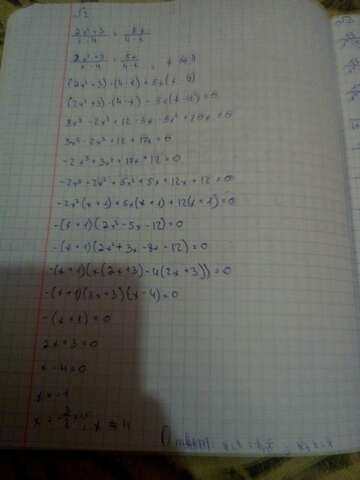 √2
(2x²+3)/(x-4) = 5x/(4-x)
(2x²+3)/(x-4) = 5x/(4-x), x ≠ 4
(2x²+3)·(4-x)=5x(x-4)
(2x²+3)·(4-x)-5x(x-4)=0
8x²-2x³+12-3x-5x²+20x=0
3x²-2x³+12+17x=0
-2x³+3x²+17x+12=0
-2x³-2x²+5x²+5x+12x+12=0
-2x²(x+1)+5x(x+1)+12(x+1)=0
-(x+1)(2x²-5x-12)=0
-(x+1)(2x²+3x-8x-12)=0
-(x+1)(x(2x+3)-4(2x+3))=0
-(x+1)(2x+3)(x-4)=0
-(x+1)=0
2x+3=0
x-4=0
x=-1
x=-3/2, x ≠ 4
Ответ: